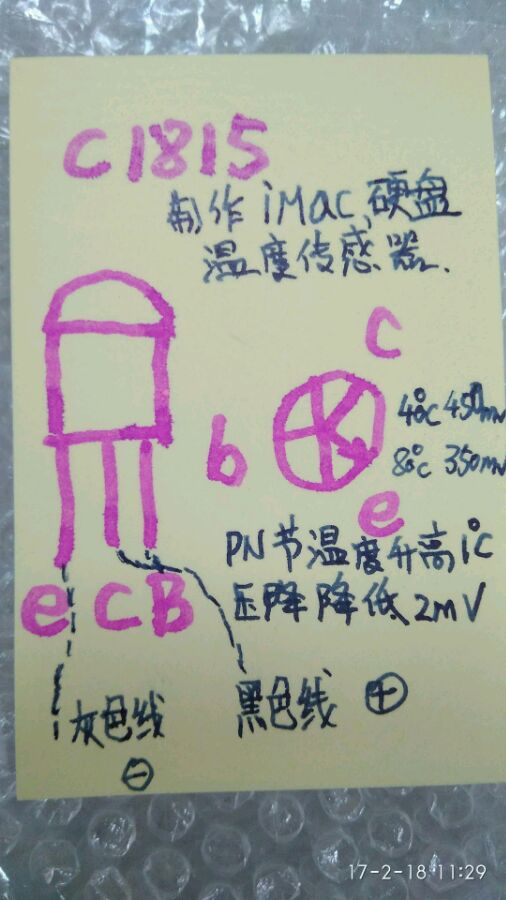 C1815
制作iMac硬盘
温度传感器.
c
b
40℃ 450mv
80℃ 350mv
e
PN节温度升高1℃
压降降低2mV
e C B
灰色线
⊖
黑色线 ⊕
17-2-18 11:29